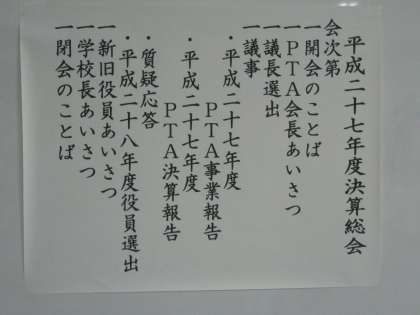 平成二十七年度決算総会
会次第
一開会のことば
一PTA会長あいさつ
一議長選出
一議事
・平成二十七年度
PTA事業報告
・平成二十七年度
PTA決算報告
・質疑応答
・平成二十八年度役員選出
一新旧役員あいさつ
一学校長あいさつ
一閉会のことば